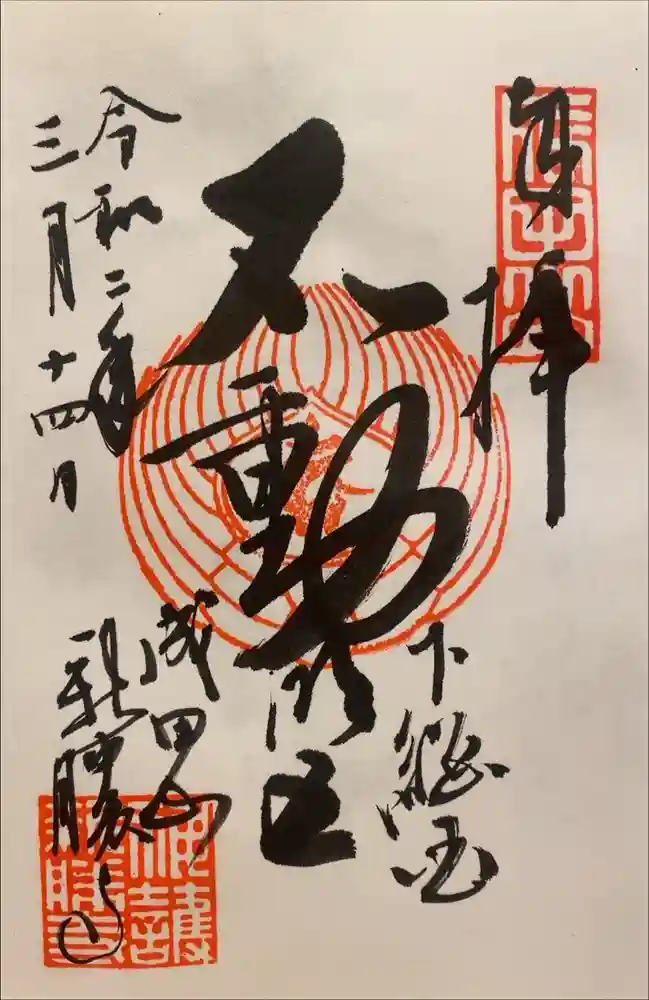 奉拝
下総国
不動明王
成田山
新勝寺
令和二年
三月十四日